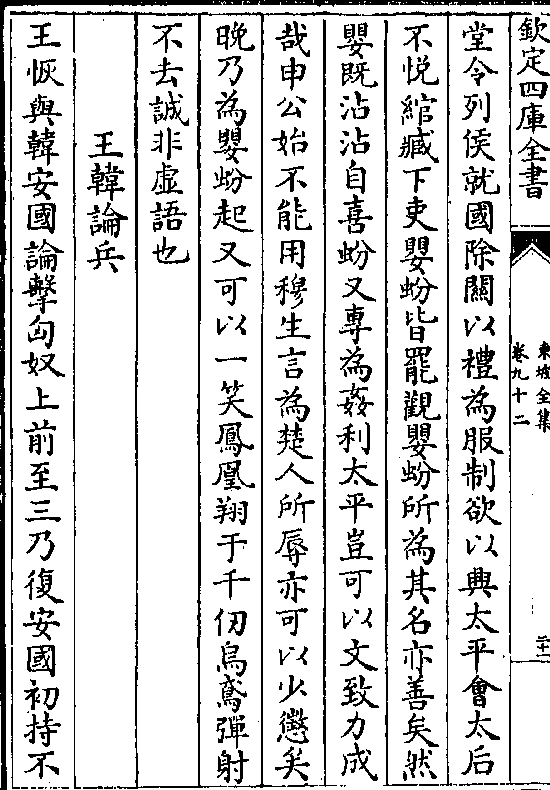 欽定四庫全書
東坡全集
卷九十二
二十一
堂令列侯就國除關以禮為服制欲以興太平會太后
不悅綰臧下吏嬰蚡皆罷觀嬰蚡所為其名亦善矣然
嬰既沾沾自喜蚡又專為姦利太平豈可以文致力成
哉申公始不能用穆生言為楚人所辱亦可以少懲矣
晚乃為嬰蚡起又可以一笑鳳凰翔于千仞烏鳶彈射
不去誠非虛語也
王韓論兵
王恢與韓安國論擊匈奴上前至三乃復安國初持不